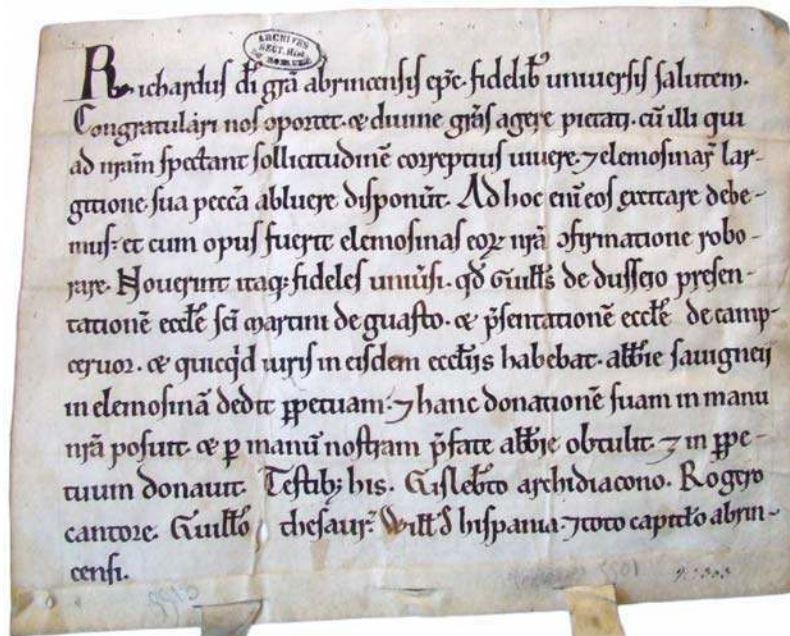 ARCHIVES
SECT. HIST.
Richardus dī grā abrincensis epc̄. fidelibꝰ uniuersis salutem.
Congratulari nos oportet. & diuine grās agere pietati. cū illi qui
ad nrām spectant sollicitudinē correptius uiuere. ⁊ elemosinaꝝ lar-
gitione sua peccā abluere disponūt. Ad hoc eni eos excitare debe-
mus: et cum opus fuerit elemosinas eoꝝ nrā ꝯfirmatione robo-
rare. Nouerint itaq; fideles uniūsi. qđ Guiłłs de dusseio presen-
tationē eccłe scī martini de guasto. & p̄sentationē eccłe de camp-
ceruor. & quicq'd iuris in eisdem eccłijs habebat. abbīe sauigneij
in elemosinā dedit ꝑpetuam: ⁊ hanc donationē suam in manu
nrā posuit. & ꝑ manū nostram p̄fate abbīe obtulit. ⁊ in ꝑpe-
tuum donauit. Testibꝫ his. Gislebt̄o archidiacono. Rogero
cantore. Guiłło thesaur̄. Wiłł đ hispania. ⁊ toto capitło abrin-
censi.